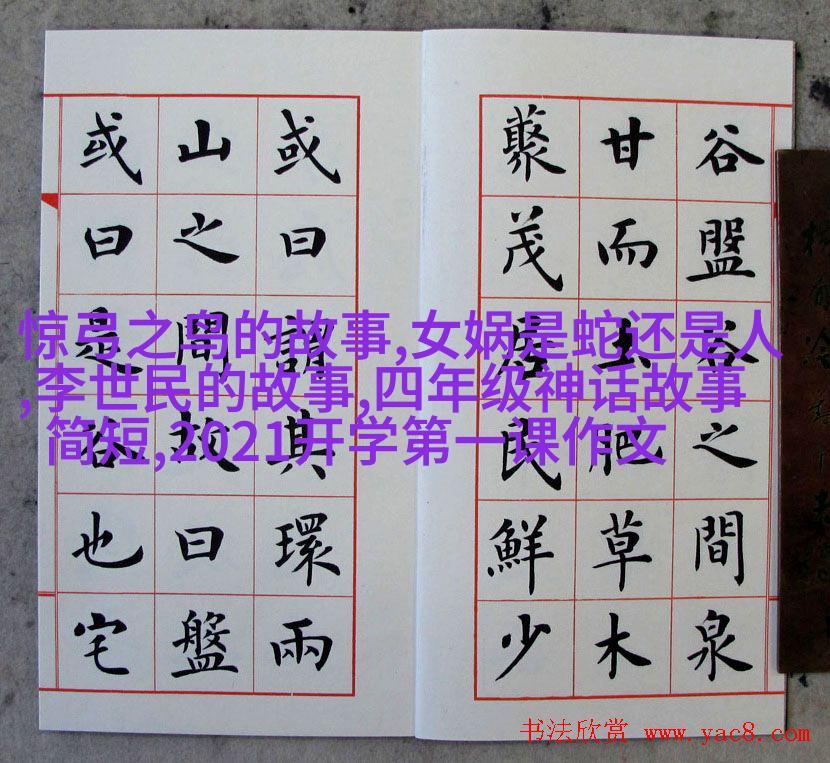 谷盤谷之間泉
甘而土肥草木
藂茂居民鮮少
或曰謂其環兩
山之間故曰盤
或曰是谷也宅
惊弓之鸟的故事,女娲是蛇还是人
,李世民的故事,四年级神话故事
简短,2021开学第一课作文
书法欣赏 www.yac8.com